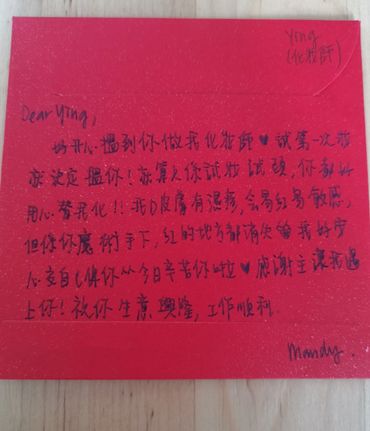 Ying
(化妝師)
Dear Ying,
好開心搵到你做我化妝師♥試第一次妝
就決定搵你！就算之後試妝試頭，你都好
用心替我化!! 我D皮膚有濕疹，會易紅易敏感，
但係你魔術手下，紅的地方都消失 我好安
心交自己俾你 今日辛苦你啦♥感謝主讓我遇
上你！祝你生意興隆，工作順利.
Mandy.